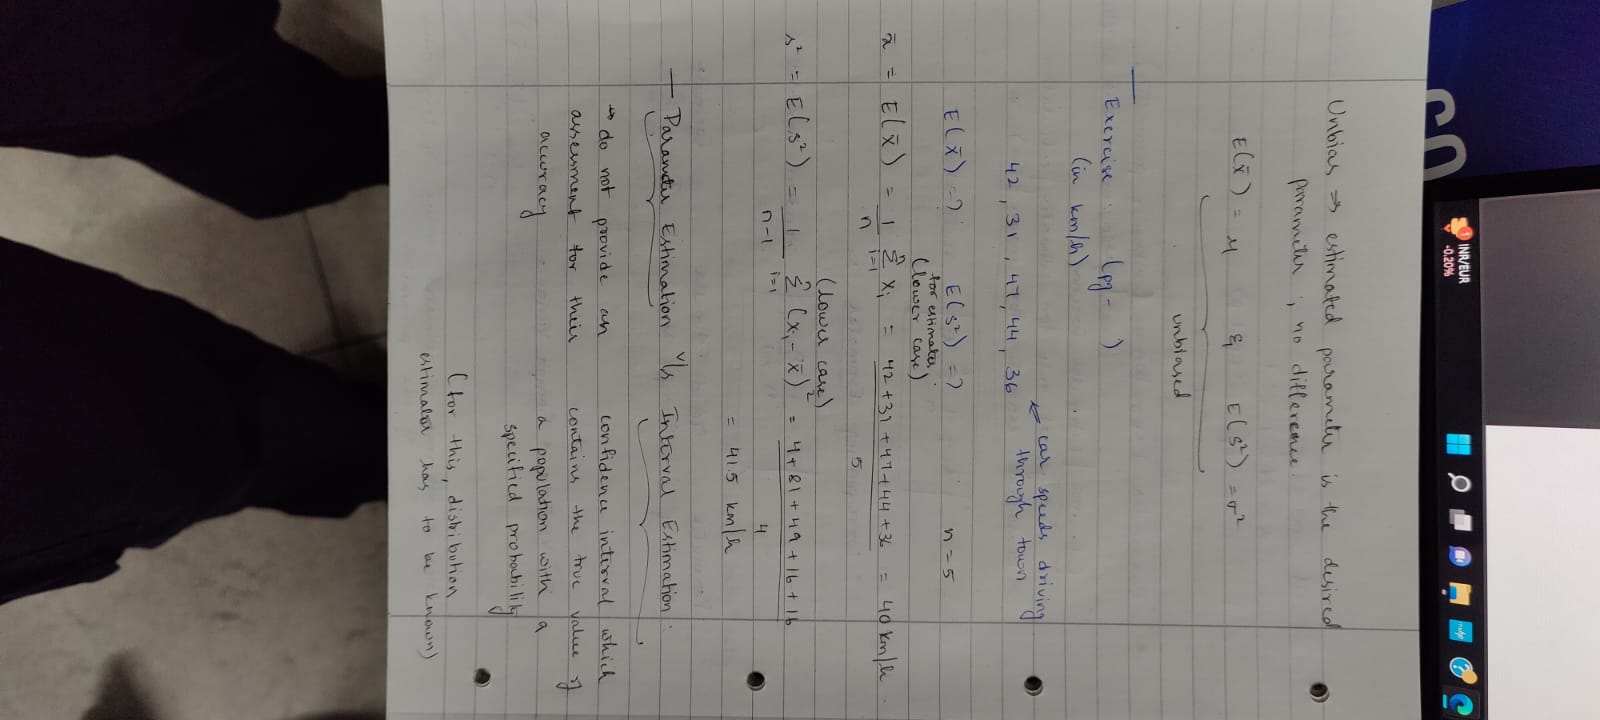 CO
1
INR/EUR
-0.20%
Unbias ⇒ estimated parameter is the desired
parameter, no difference.
E(x̄) = μ & E(s²) = σ²
unbiased
Exercise : (pg - )
(in km/h)
← car speeds driving
through town
42, 31, 47, 44, 36
E(x̄) = ? E(s²) = ? n = 5
for estimates
(lower case)
x̄ = E(x̄) = 1/n Σ_{i=1}^{n} xᵢ = (42+31+47+44+36)/5 = 40 km/h
(lower case)
s² = E(s²) = 1/(n-1) Σ_{i=1}^{n} (xᵢ - x̄)² = (4+81+49+16+16)/4
= 41.5 km/h
— Parameter Estimation V/s Interval Estimation :
→ do not provide an
assessment for their
accuracy
confidence interval which
contains the true value of
a population with a
specified probability
(for this, distribution
estimator has to be known)